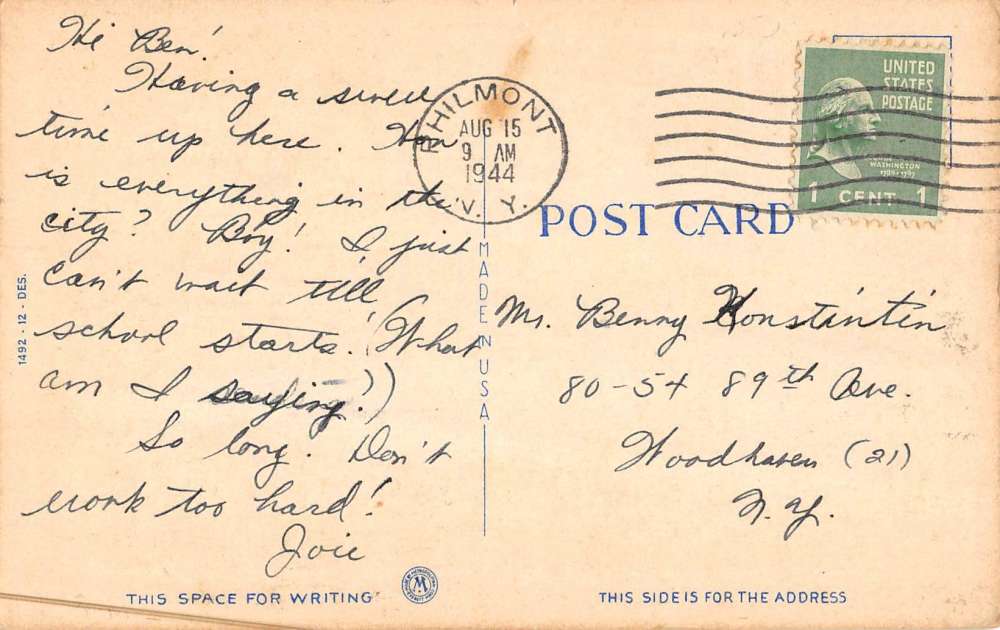 Hi Ben!
Having a swell
time up here. How
is everything in the
city? Boy! I just
can't wait till
school starts. (What
am I saying?))
So long. Don't
work too hard!
Joie
THIS SPACE FOR WRITING
1492 · 12 - DES.
MADE IN USA
PHILMONT
AUG 15
9 AM
1944
N. Y.
UNITED
STATES
POSTAGE
WASHINGTON
1789-1797
1 CENT 1
POST CARD
Mr. Benny Konstantin
80-54 89th Ave.
Woodhaven (21)
N.Y.
M
THIS SIDE IS FOR THE ADDRESS